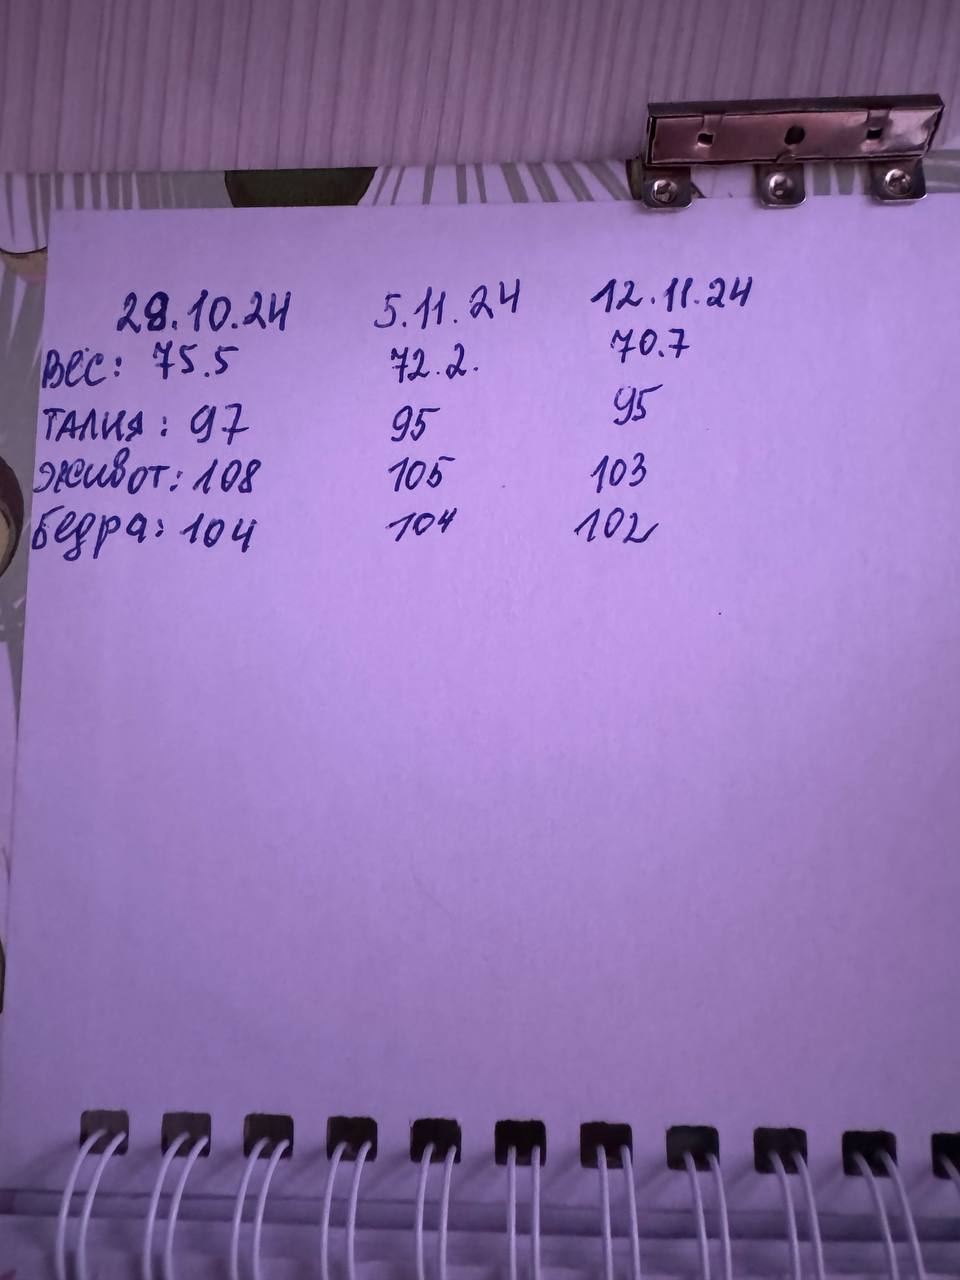 28.10.24 5.11.24 12.11.24
Вес: 75.5 72.2. 70.7
Талия: 97 95 95
Живот: 108 105 103
Бедра: 104 104 102